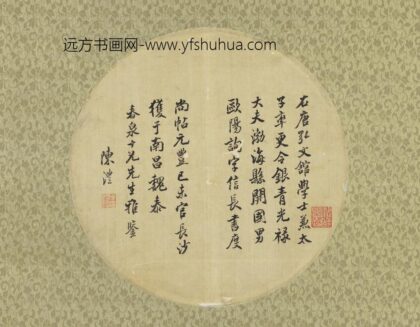 远方书画网-www.yfshuhua.com
右唐弘文館學士兼太
子率更令銀青光祿
大夫渤海縣開國男
歐陽詢字信長書度
尚帖元豐己未官長沙
獲于南昌魏泰
春泉十兄先生雅鑒
陳澧